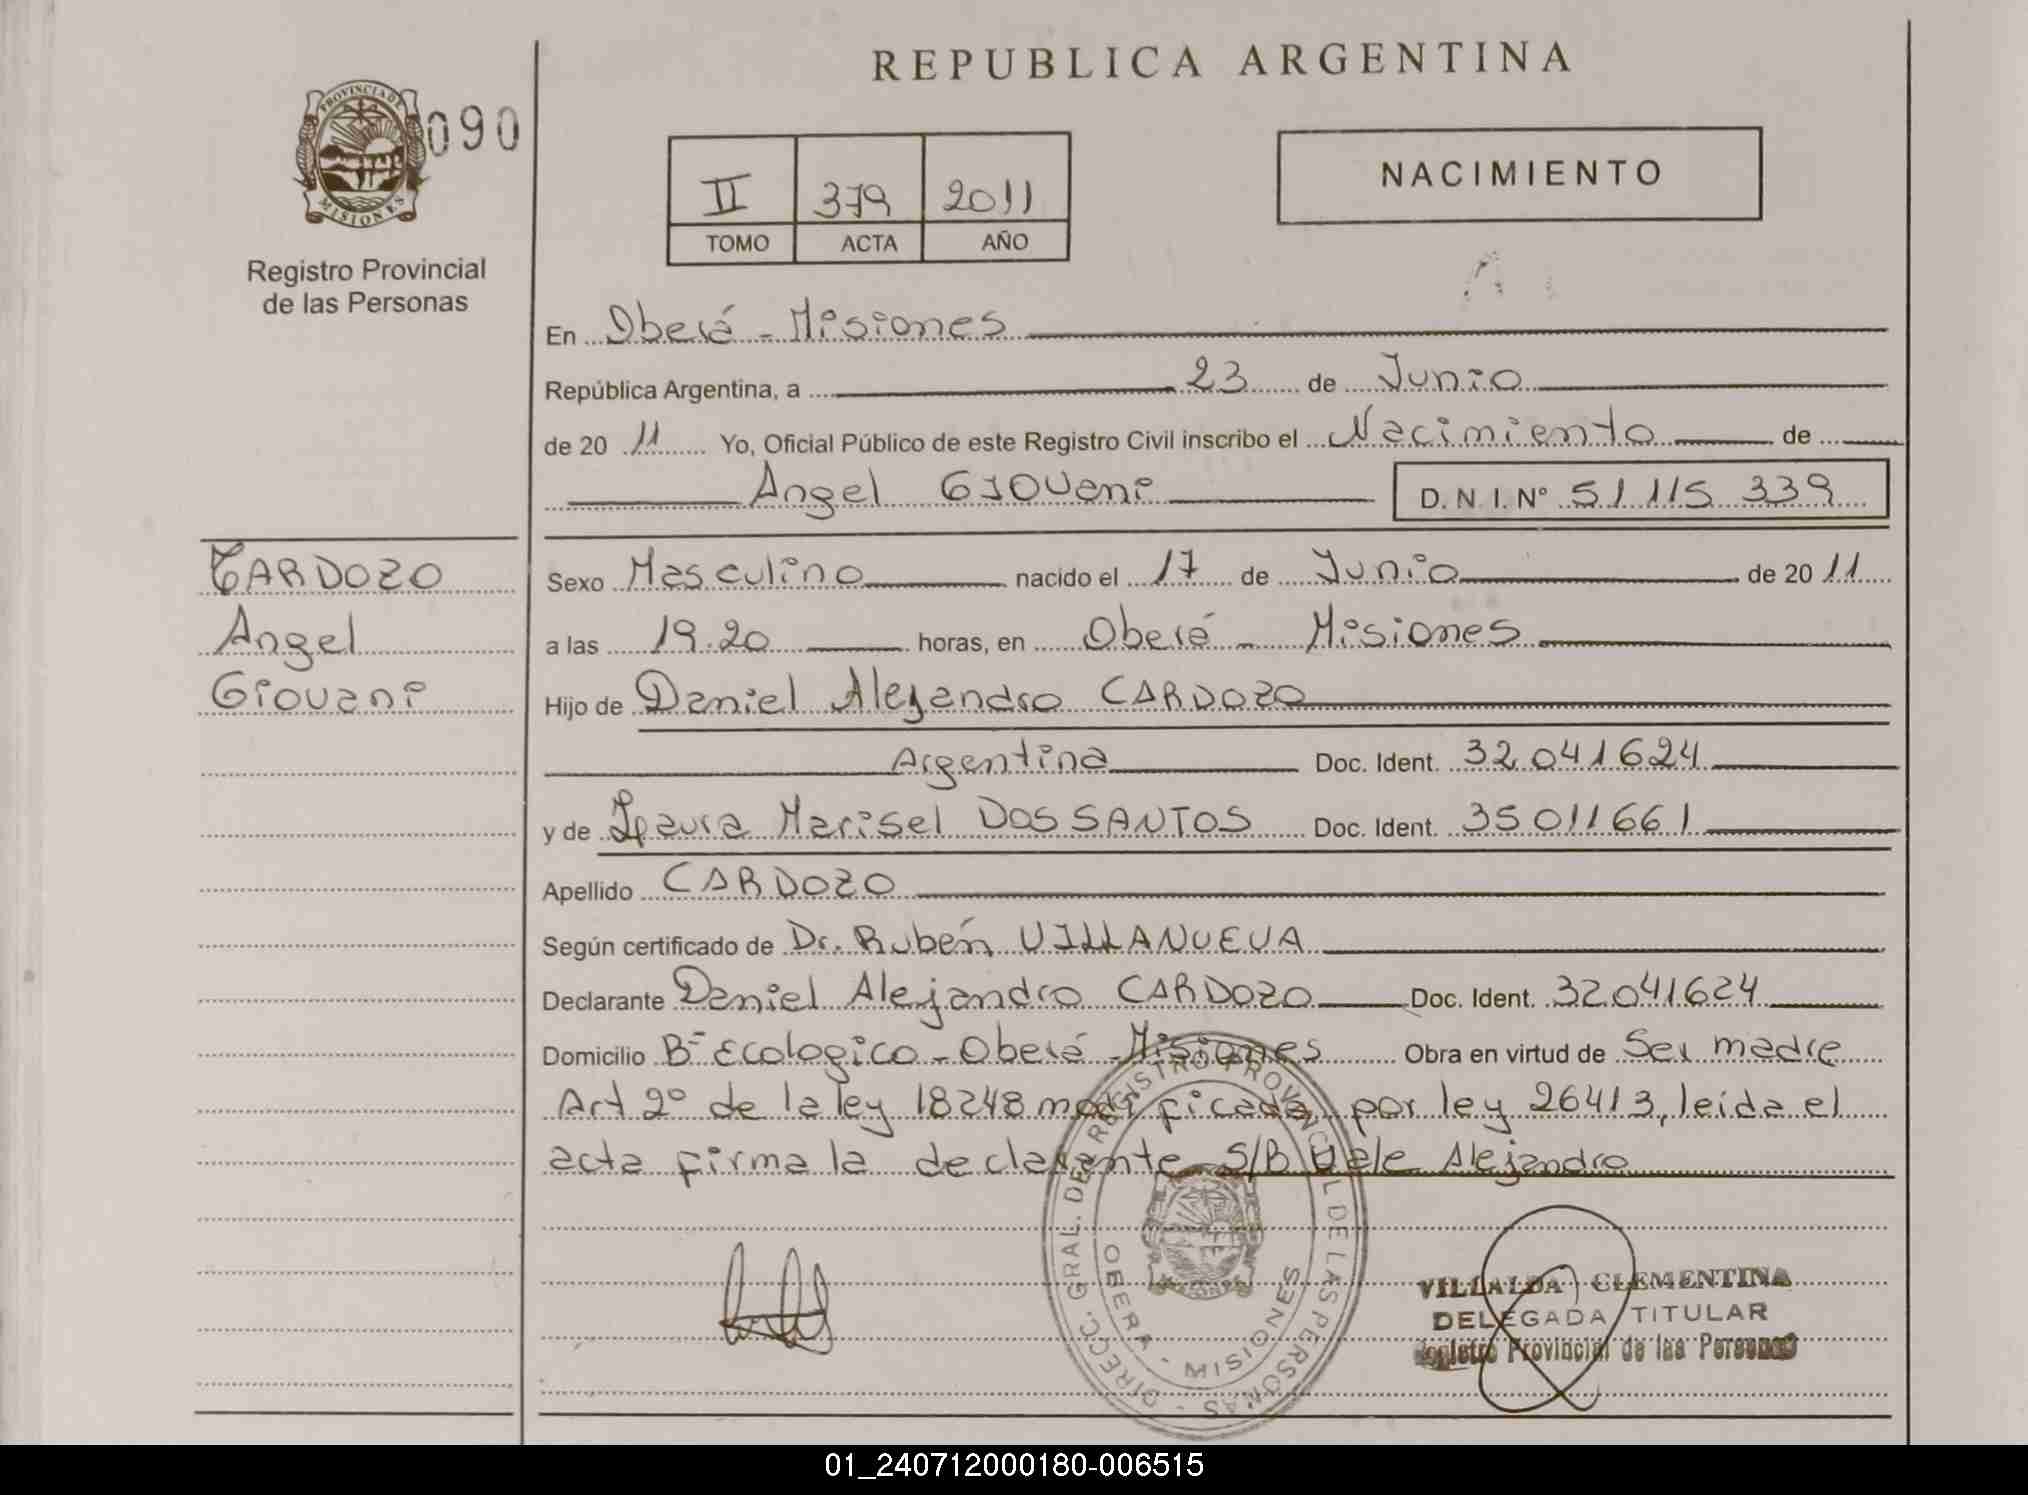 REPUBLICA ARGENTINA
PROVINCIA DE
MISIONES
090
Registro Provincial
de las Personas
II 379 2011
TOMO ACTA AÑO
NACIMIENTO
En Oberá - Misiones
República Argentina, a 23 de Junio
de 20 11 Yo, Oficial Público de este Registro Civil inscribo el Nacimiento de
Angel GIOVani D. N. I. Nº 51 115 339
CARDOZO
Angel
Giovani
Sexo Masculino nacido el 17 de Junio de 20 11
a las 19.20 horas, en Oberá - Misiones
Hijo de Daniel Alejandro CARDOZO
Argentina Doc. Ident. 32 041624
y de Laura Marisel DOS SANTOS Doc. Ident. 35011661
Apellido CARDOZO
Según certificado de Dr. Rubén VILLANUEVA
Declarante Daniel Alejandro CARDOZO Doc. Ident. 32041624
Domicilio Bº Ecologico - Oberá - Misiones Obra en virtud de Ser madre
Art 2º de la ley 18248 modificada por ley 26413, leida el
acta firma la declarante S/B Vale Alejandro
DIRECC. GRAL. DEL REGISTRO PROVINCIAL DE LAS PERSONAS -
OBERA - MISIONES
VILLALDA CLEMENTINA
DELEGADA TITULAR
Registro Provincial de las Personas
01_240712000180-006515